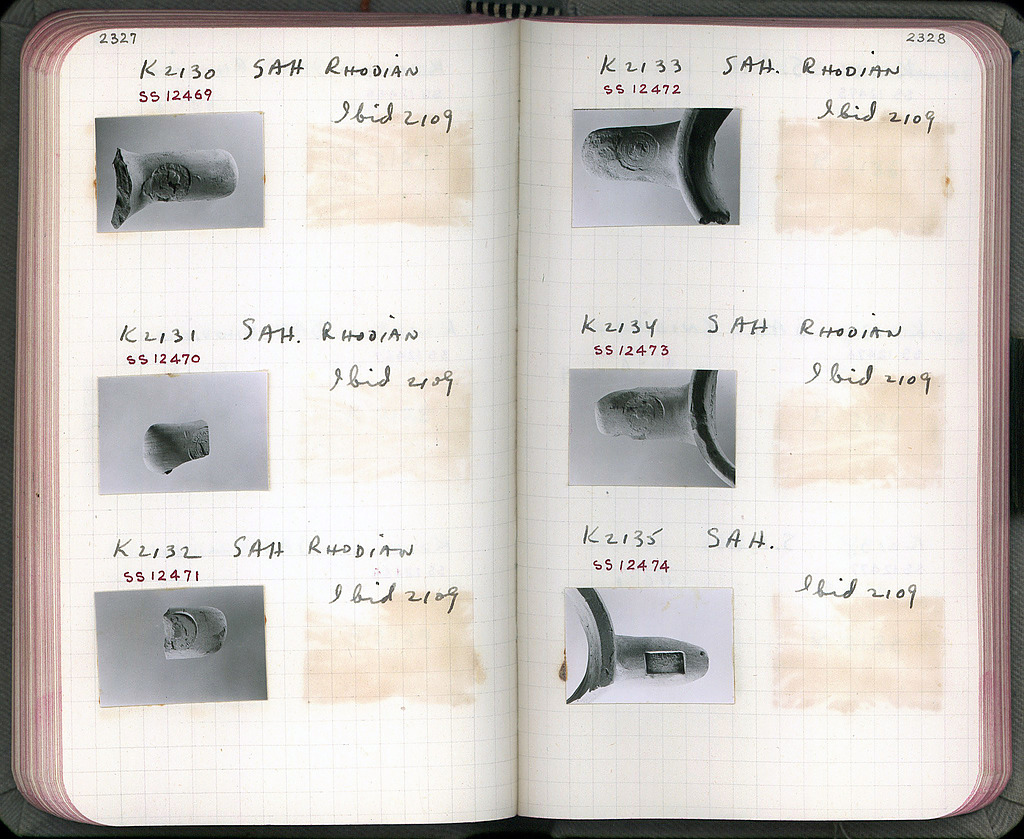 2327
K2130 SAH RHODIAN
SS 12469
Ibid 2109
K2131 SAH. RHODIAN
SS 12470
Ibid 2109
K2132 SAH RHODIAN
SS 12471
Ibid 2109
2328
K2133 SAH. RHODIAN
SS 12472
Ibid 2109
K2134 SAH RHODIAN
SS 12473
Ibid 2109
K2135 SAH.
SS 12474
Ibid 2109